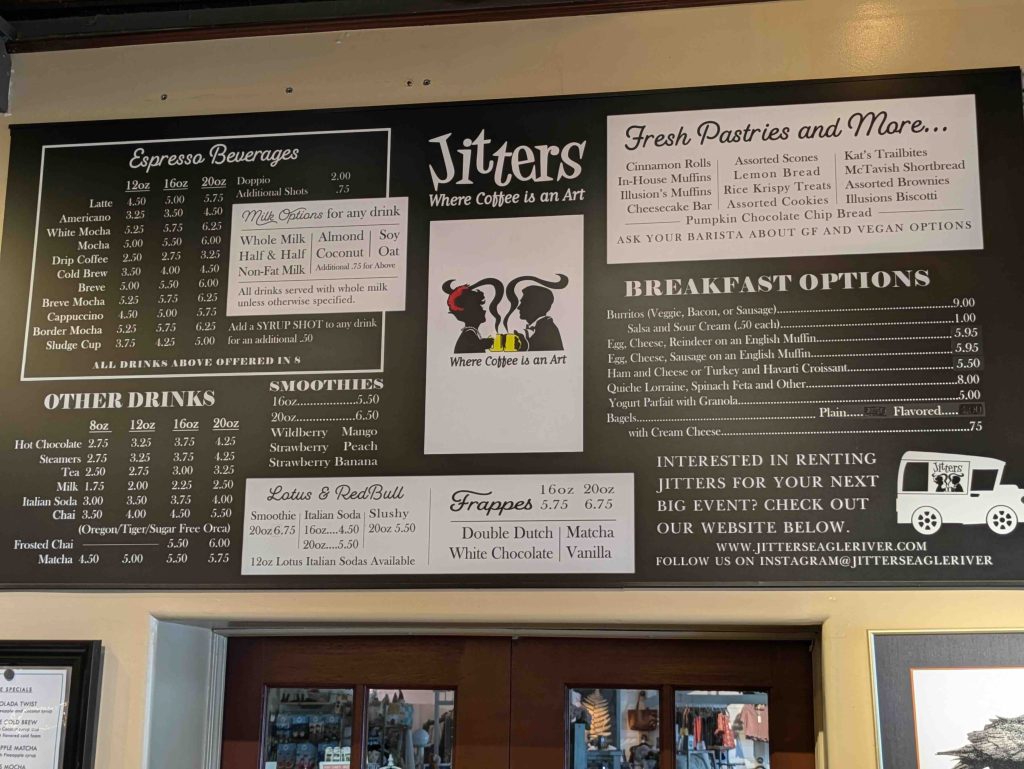 Espresso Beverages
12oz 16oz 20oz
Latte 4.50 5.00 5.75
Americano 3.25 3.50 4.50
White Mocha 5.25 5.75 6.25
Mocha 5.00 5.50 6.00
Drip Coffee 2.50 2.75 3.25
Cold Brew 3.50 4.00 4.50
Breve 5.00 5.50 6.00
Breve Mocha 5.25 5.75 6.25
Cappuccino 4.50 5.00 5.75
Border Mocha 5.25 5.75 6.25
Sludge Cup 3.75 4.25 5.00
Doppio 2.00
Additional Shots .75
Milk Options for any drink
Whole Milk Almond Soy
Half & Half Coconut Oat
Non-Fat Milk Additional .75 for Above
All drinks served with whole milk
unless otherwise specified.
Add a SYRUP SHOT to any drink
for an additional .50
ALL DRINKS ABOVE OFFERED IN 8
OTHER DRINKS
8oz 12oz 16oz 20oz
Hot Chocolate 2.75 3.25 3.75 4.25
Steamers 2.75 3.25 3.75 4.25
Tea 2.50 2.75 3.00 3.25
Milk 1.75 2.00 2.25 2.50
Italian Soda 3.00 3.50 3.75 4.00
Chai 3.50 4.00 4.50 5.50
(Oregon/Tiger/Sugar Free Orca)
Frosted Chai 5.50 6.00
Matcha 4.50 5.00 5.50 5.75
SMOOTHIES
16oz....................5.50
20oz....................6.50
Wildberry Mango
Strawberry Peach
Strawberry Banana
Lotus & RedBull
Smoothie Italian Soda Slushy
20oz 6.75 16oz....4.50 20oz 5.50
20oz....5.50
12oz Lotus Italian Sodas Available
Frappes 16oz 20oz
5.75 6.75
Double Dutch Matcha
White Chocolate Vanilla
Jitters
Where Coffee is an Art
Where Coffee is an Art
Fresh Pastries and More...
Cinnamon Rolls Assorted Scones Kat's Trailbites
In-House Muffins Lemon Bread McTavish Shortbread
Illusion's Muffins Rice Krispy Treats Assorted Brownies
Cheesecake Bar Assorted Cookies Illusions Biscotti
Pumpkin Chocolate Chip Bread
ASK YOUR BARISTA ABOUT GF AND VEGAN OPTIONS
BREAKFAST OPTIONS
Burritos (Veggie, Bacon, or Sausage)....................9.00
Salsa and Sour Cream (.50 each)....................1.00
Egg, Cheese, Reindeer on an English Muffin....................5.95
Egg, Cheese, Sausage on an English Muffin....................5.95
Ham and Cheese or Turkey and Havarti Croissant....................5.50
Quiche Lorraine, Spinach Feta and Other....................8.00
Yogurt Parfait with Granola....................5.00
Bagels....................Plain..... Flavored.....
with Cream Cheese....................75
INTERESTED IN RENTING
JITTERS FOR YOUR NEXT
BIG EVENT? CHECK OUT
OUR WEBSITE BELOW.
Jitters
WWW.JITTERSEAGLERIVER.COM
FOLLOW US ON INSTAGRAM@JITTERSEAGLERIVER
SPECIALS
TWIST
COLD BREW
MATCHA
MOCHA